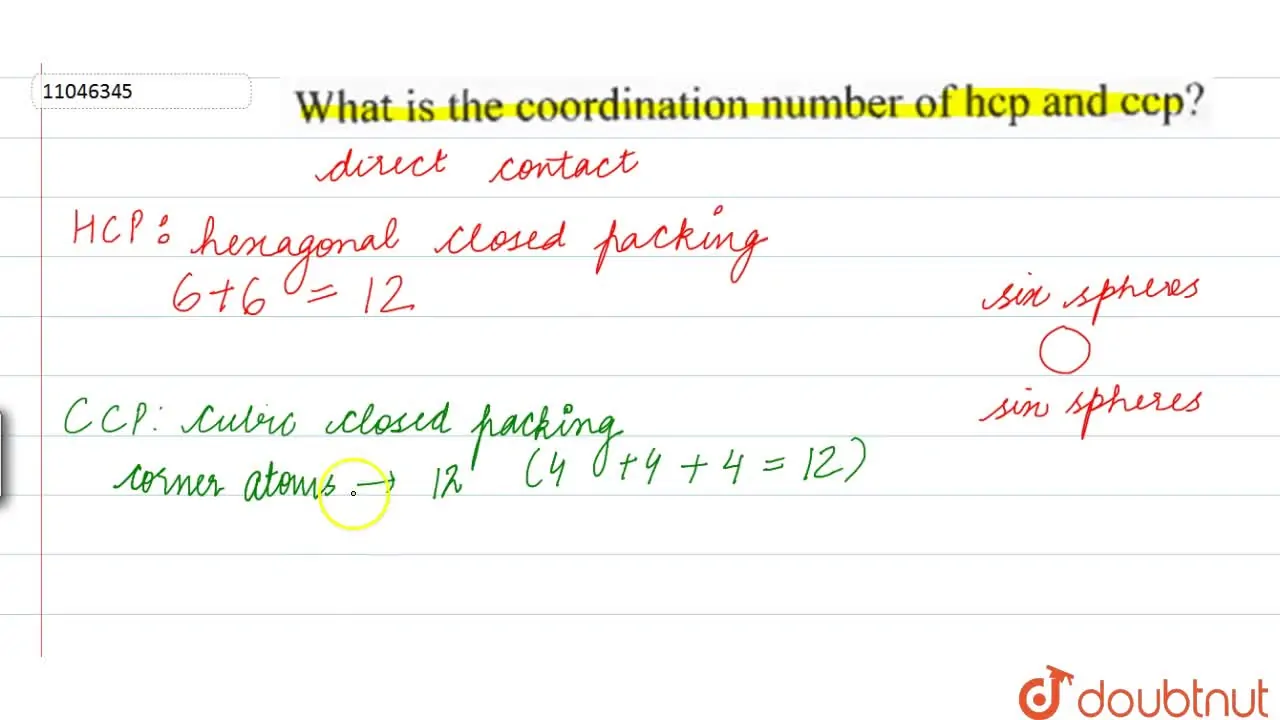 11046345
What is the coordination number of hcp and ccp?
direct contact
HCP: hexagonal closed packing
6+6 = 12
six spheres
six spheres
CCP: cubic closed packing
corner atoms → 12 (4 +4 + 4 = 12)
doubtnut